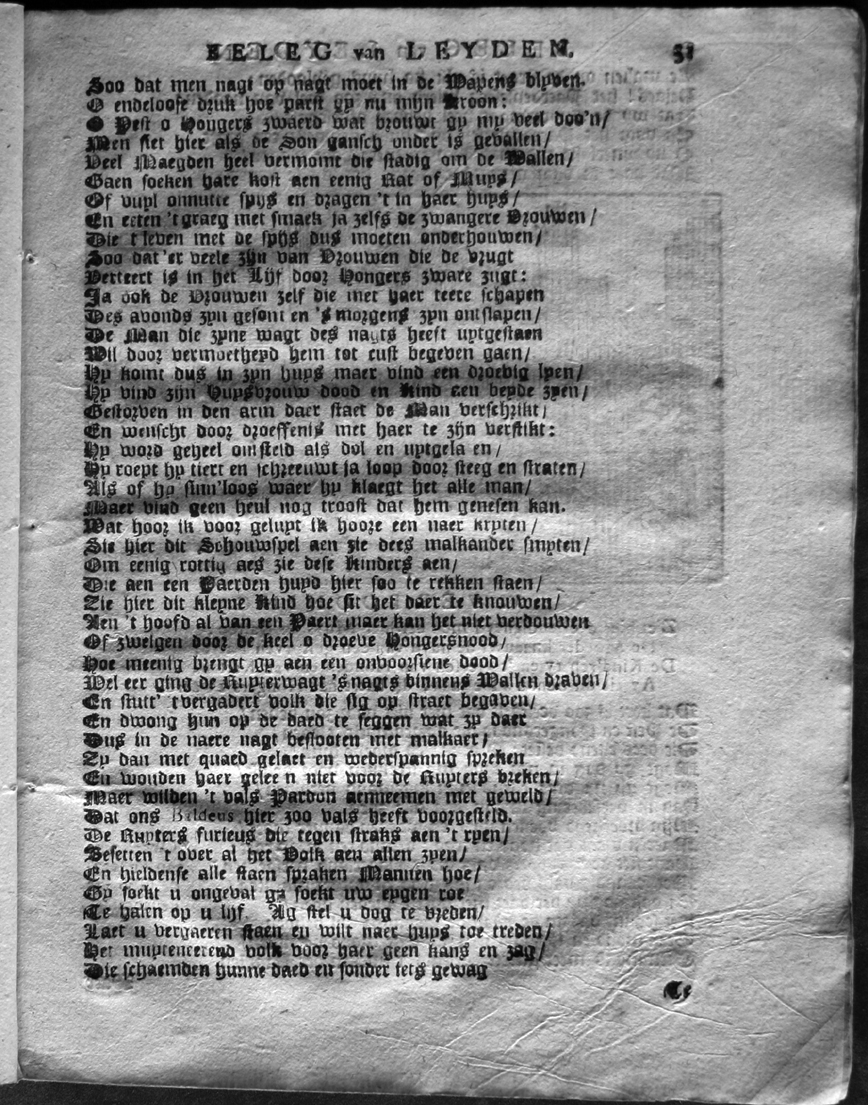 BELEG van LEYDEN. 51
Soo dat men nagt op nagt moet in de Wapens blyven.
O endeloose druk hoe parst gy nu mijn Kroon:
O Pest o Hongers zwaerd wat brouwt gy my veel doo'n/
Men siet hier als de Son gansch onder is gevallen/
Veel Maegden heel vermomt die stadig om de Wallen/
Gaen soeken hare kost aen eenig Kat of Muys/
Of vuyl onnutte spys en dragen 't in haer huys/
En eeten 't graeg met smaek ja zelfs de zwangere Vrouwen/
Die 't leven met de spijs dus moeten onderhouwen/
Soo dat'er veele zijn van Vrouwen die de vrugt
Verteert is in het Lijf door Hongers zware zugt:
Ja ook de Vrouwen zelf die met haer teere schapen
Des avonds zyn gesont en 's morgens zyn ontslapen/
De Man die zyne wagt des nagts heeft uytgestaen
Wil door vermoetheyd hem tot rust begeven gaen/
Hy komt dus in zyn huys maer vind een droevig lyen/
Hy vind zijn Huysvrouw dood en Kind aen beyde zyen/
Gestorven in den arm daer staet de Man verschrikt/
En wenscht door droeffenis met haer te zijn verstikt:
Hy word geheel ontsteld als dol en uytgela en/
Hy roept hy tiert en schreeuwt ja loop door steeg en straten/
Als of hy sinn'loos waer hy klaegt het alle man/
Maer vind geen heul nog troost dat hem genesen kan.
Wat hoor ik voor geluyt ik hoore een naer kryten/
Sie hier dit Schouwspel aen zie dees malkander smyten/
Om eenig rottig aes zie dese Kinders aen/
Die aen een Paerden huyd hier soo te rekken staen/
Zie hier dit kleyne Kind hoe sit het daer te knouwen/
Aen 't hoofd al van een Paert maer kan het niet verdouwen
Of zwelgen door de keel o droeve Hongersnood/
Hoe meenig brengt gy aen een onvoorsiene dood/
Wel eer ging de Ruyterwagt 's nagts binnens Wallen draven/
En stutt' 't vergadert volk die sig op straet begaven/
En dwong hun op de daed te seggen wat zy daer
Dus in de naere nagt beslooten met malkaer/
Zy dan met quaed gelaet en wederspannig spreken
En wouden haer gelee n niet voor de Ruyters breken/
Maer wilden 't vals Pardon aenneemen met geweld/
Dat ons Baldeus hier zoo vals heeft voorgesteld.
De Ruyters furieus die tegen straks aen 't ryen/
Besetten 't over al het Volk aen allen zyen/
En hieldense alle staen spraken Mannen hoe/
Gy soekt u ongeval ga soekt uw eygen roe
Te halen op u lijf. Ag stel u dog te vreden/
Laet u vergaeren staen en wilt naer huys toe treden/
Het muyteneerend volk voor haer geen kans en zag/
Die schaemden hunne daed en sonder iets gewag